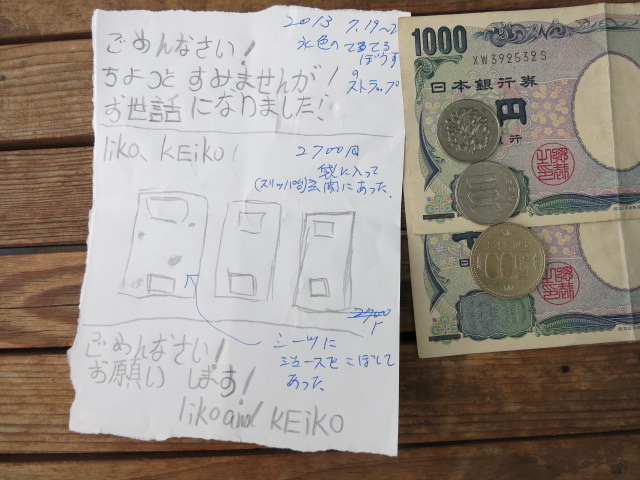 2013 7.19～2
水色のてるてる
ぼうず
の
ストラップ
ごめんなさい!
ちょっとすみませんが!
お世話になりました!
liko、KEiKO!
2700円
袋に入って
(スリッパの)玄関にあった。
シーツに
ジュースをこぼして
あった。
ごめんなさい!
お願いします!
liko and KEiKO
1000
XW392532S
日本銀行券
円
行券
100